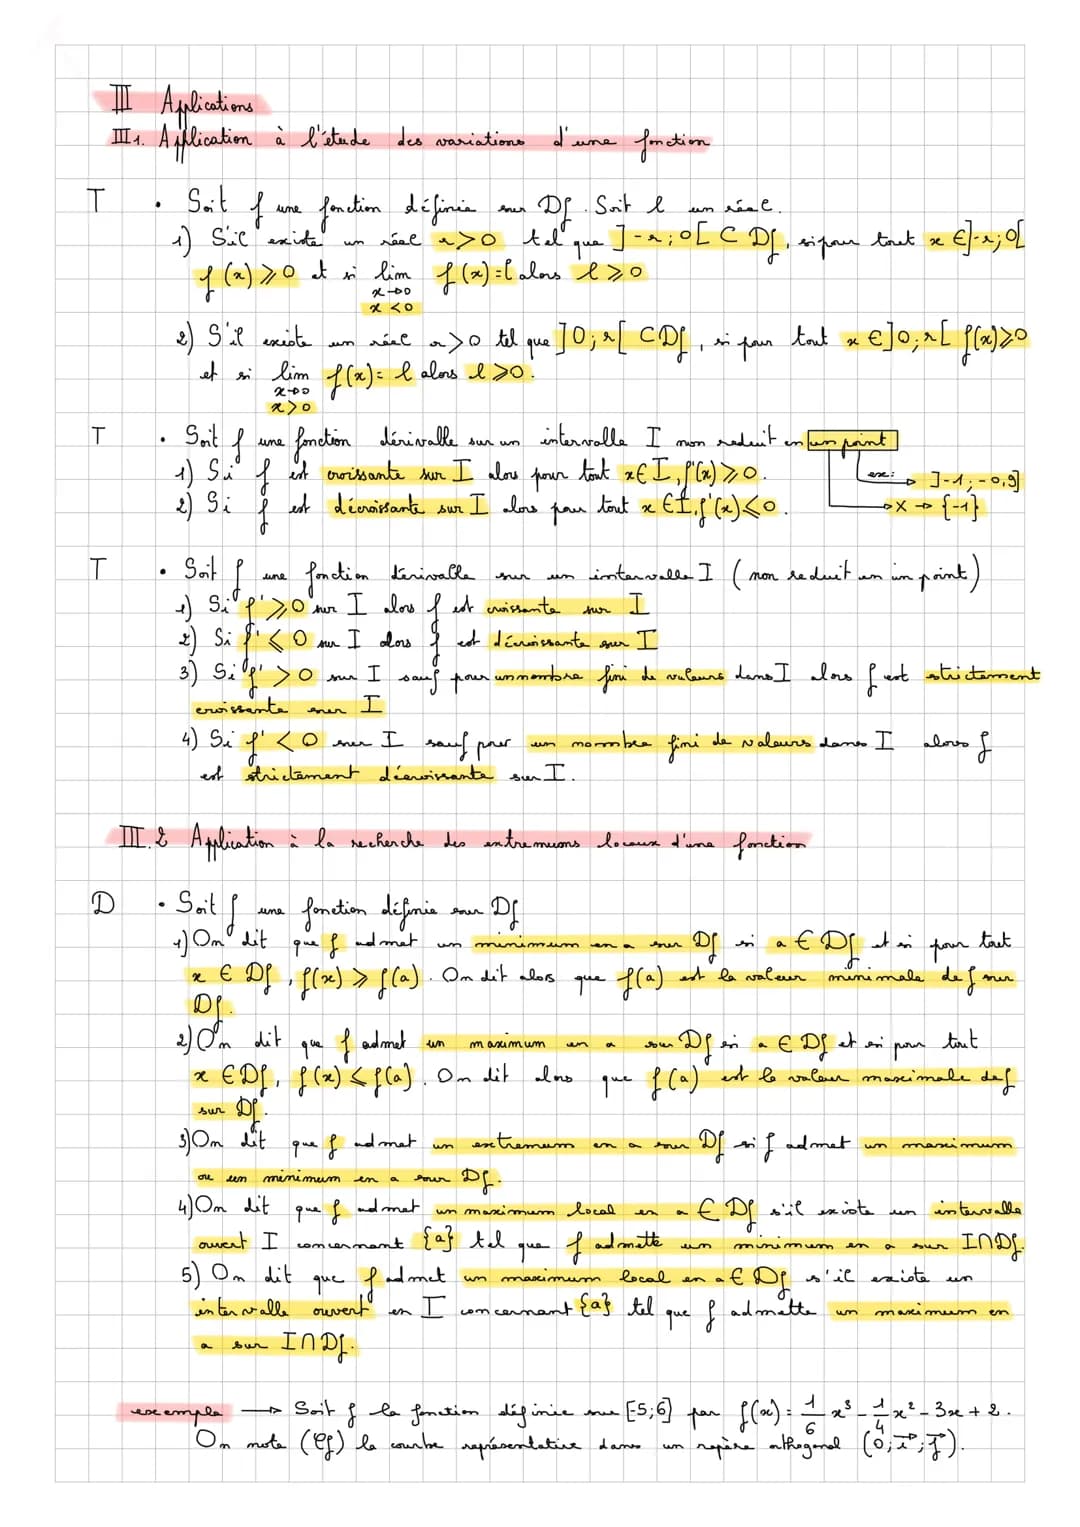 III Applications
III 1. Application à l'étude des variations d'une fonction
T • Soit f une fonction définie sur Df. Soit l un réel.
1) S'il existe un réel r>0 tel que ]-r;0[ ⊂ Df, si pour tout x ∈]-r;0[
f(x)⩾0 et si lim f(x)=l alors l⩾0
x→0
x<0
2) S'il existe un réel r>0 tel que ]0;r[ ⊂Df, si pour tout x ∈]0;r[ f(x)⩾0
et si lim f(x)=l alors l⩾0.
x→0
x>0
T • Soit f une fonction dérivalle sur un intervalle I non reduit en un point
1) Si f est croissante sur I alors pour tout x∈I, f'(x)⩾0. ex: → ]-1;-0,9]
2) Si f est décroissante sur I alors pour tout x∈I, f'(x)⩽0. → X → {-1}
T • Soit f une fonction dérivalle sur un intervalle I (non reduit en un point)
1) Si f'⩾0 sur I alors f est croissante sur I
2) Si f'⩽0 sur I alors f est décroissante sur I
3) Si f'>0 sur I sauf pour un nombre fini de valeurs dans I alors f est strictement
croissante sur I
4) Si f'<0 sur I sauf pour un nombre fini de valeurs dans I alors f
est strictement décroissante sur I.
III.2 Application à la recherche des extremums locaux d'une fonction
D • Soit f une fonction définie sur Df
1) On dit que f admet un minimum en a sur Df si a∈Df et si pour tout
x∈Df, f(x)⩾f(a). On dit alors que f(a) est la valeur minimale de f sur
Df.
2) On dit que f admet un maximum en a sur Df si a∈Df et si pour tout
x∈Df, f(x)⩽f(a). On dit alors que f(a) est la valeur maximale de f
sur Df.
3) On dit que f admet un extremum en a sur Df si f admet un maximum
ou un minimum en a sur Df.
4) On dit que f admet un maximum local en a∈Df s'il existe un intervalle
ouvert I concernant {a} tel que f admette un minimum en a sur I∩Df.
5) On dit que f admet un maximum local en a∈Df s'il existe un
intervalle ouvert en I concernant {a} tel que f admette un maximum en
a sur I∩Df.
exemple → Soit f la fonction définie sur [-5;6] par f(x)=1/6 x³-1/4 x²-3x+2.
On note (Cf) la courbe représentative dans un repère othogonal (0;i→;j→).